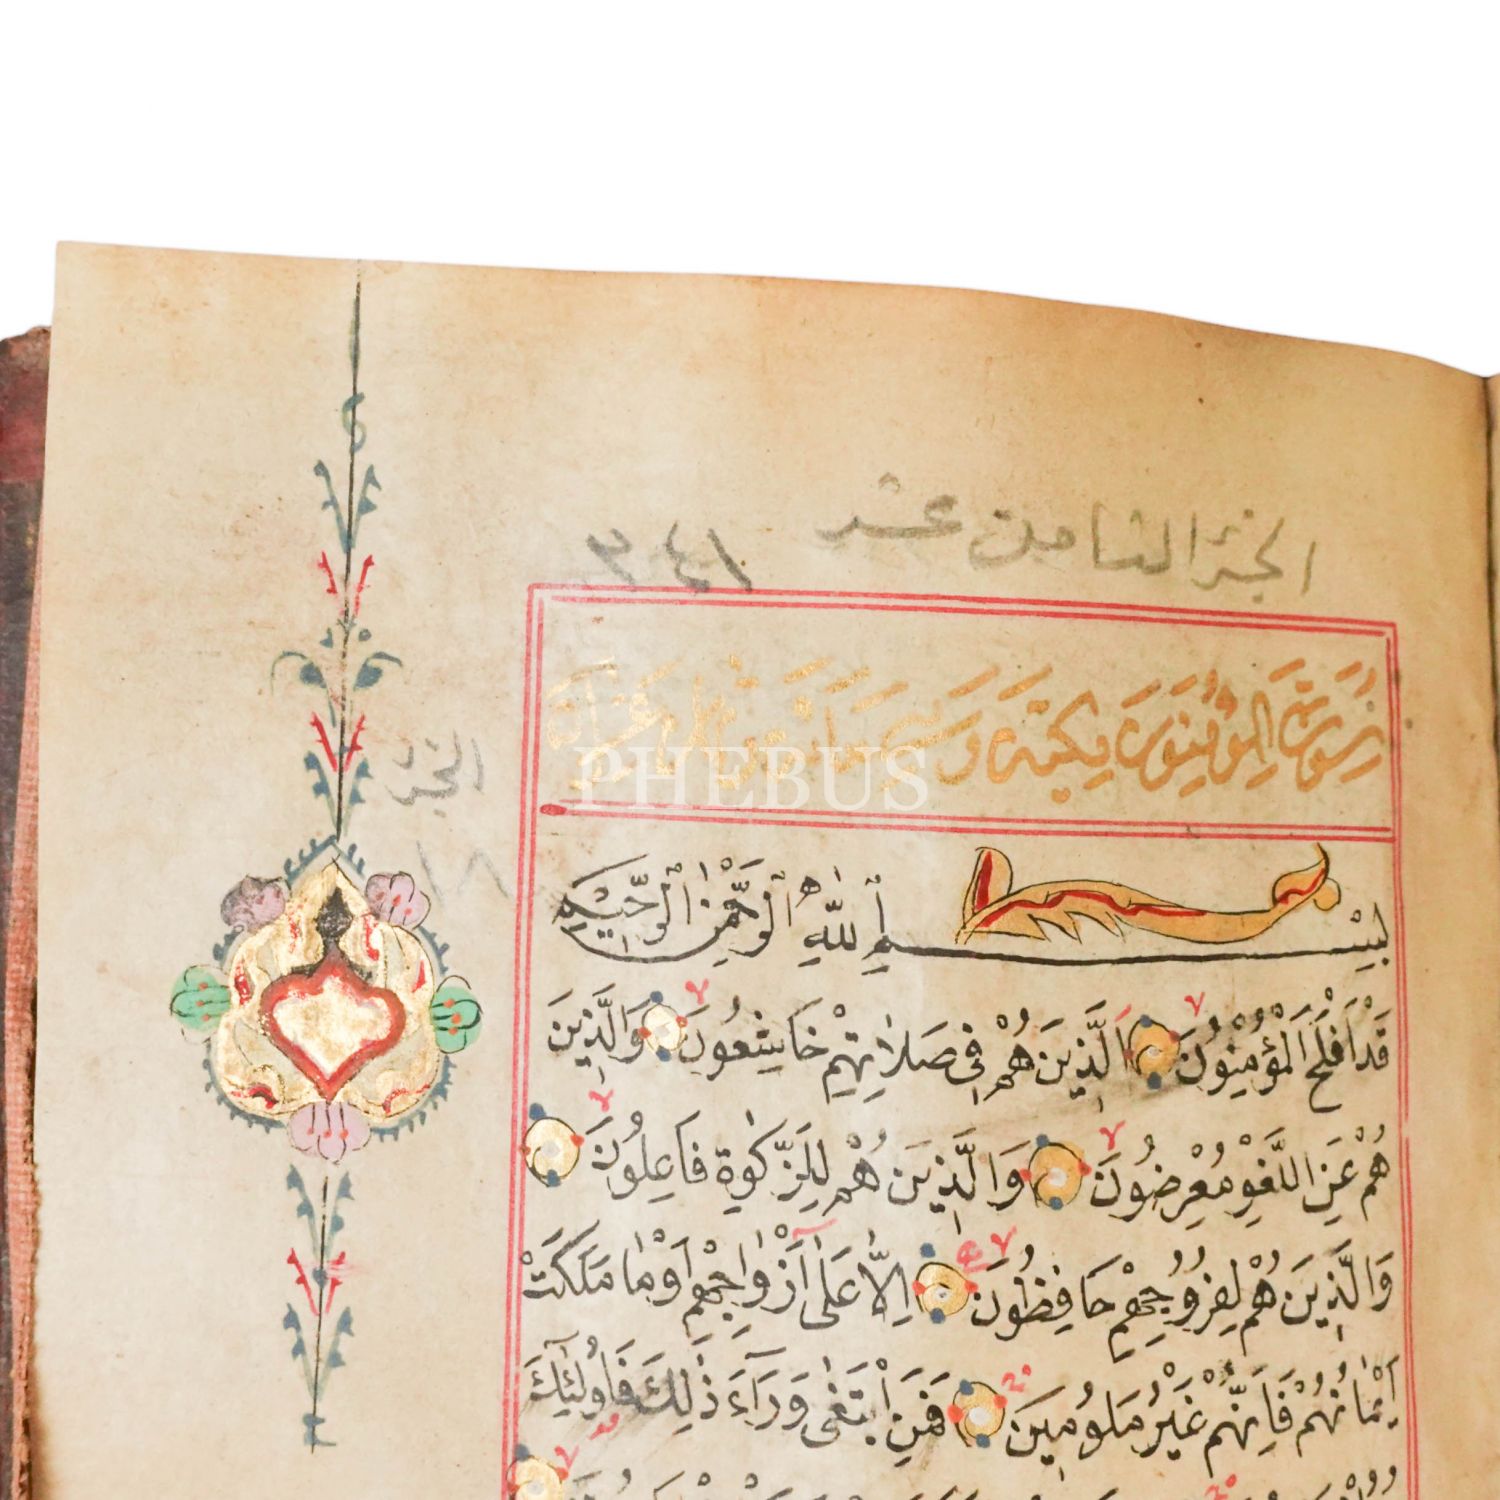 الجزء الثامن عشر
٣٤١
سُورَةُ الْمُؤْمِنُونَ مَكِيَّةٌ وَ
PHEBUS
الجزء
١٨
بِسْمِ اللّٰهِ الرَّحْمٰنِ الرَّحِيمِ
قَدْ اَفْلَحَ الْمُؤْمِنُونَ اَلَّذِينَ هُمْ فِى صَلَاتِهِمْ خَاشِعُونَ وَالَّذِينَ
هُمْ عَنِ اللَّغْوِ مُعْرِضُونَ وَالَّذِينَ هُمْ لِلزَّكٰوةِ فَاعِلُونَ
وَالَّذِينَ هُمْ لِفُرُوجِهِمْ حَافِظُونَ اِلَّا عَلٰى اَزْوَاجِهِمْ اَوْ مَا مَلَكَتْ
اَيْمَانُهُمْ فَاِنَّهُمْ غَيْرُ مَلُومِينَ فَمَنِ ابْتَغٰى وَرَاءَ ذٰلِكَ فَاُولٰئِكَ